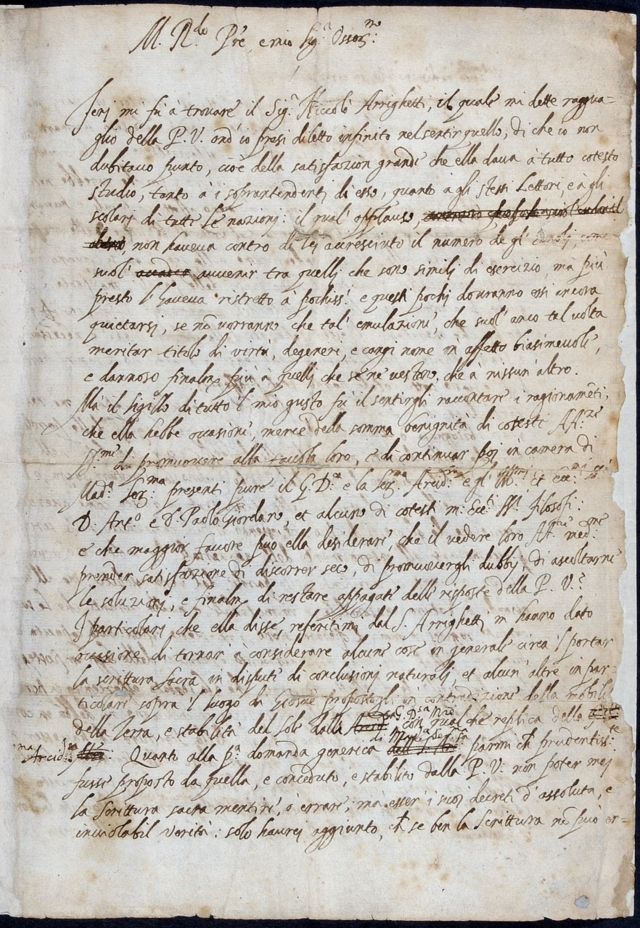 M. R.do Pre e mio Sig.r Oss.mo
Ieri mi fu à trovare il Sig.r Niccolò Arrighetti, il quale mi dette raggua-
glio della P. V. ond'io presi diletto infinito nel sentir quello, di che io non
dubitavo punto, cioè della satisfazion grande che ella dava à tutto cotesto
studio, tanto à i sopraintendenti di esso, quanto à gli stessi Lettori, e à gli
scolari di tutte le nazioni: il qual applauso,
non haveva contro di lei accresciuto il numero de gl' emoli, come
suol' avvenir tra quelli che sono simili di esercizio, ma più
presto l'haveva ristretto à pochiss.i e questi pochi dovranno essi ancora
quietarsi, se no vorranno che tal' emulazione, che suol' anco tal volta
meritar titolo di virtù, degeneri, e cangi nome in affetto biasimevole,
e dannoso finalm.e più à quelli che se ne vestono, che à nissun' altro.
Ma il sigillo di tutto il mio gusto fu il sentirgli raccontare i ragionameti,
che ella hebbe occasione, mercè della somma benignità di coteste A.ze
S.me di promuovere alla tavola loro, e di continuar poi in camera di
Mad.ma Ser.ma presenti pure il G.D.a e la Ser.ma Arcid.sa e gl' Ill.mi et Ecc.mi SS.ri
D. Ant.o e D. Paolo Giordano, et alcuno di cotesti m. Ecc.ti SS.i filosofi:
e che maggior favore può ella desiderare che il vedere loro Alt.e med.me
prender satisfazione di discorrer seco, di promuovergli dubbij, di ascoltarne
le soluzioni, e finalm.e di restare appagate delle risposte della P. V.a
I particolari, che ella disse, referitimi dal S. Arrighetti, mi hanno dato
occasione di tornar' à considerare alcune cose in generale circa 'l portar
la scrittura sacra in dispute di conclusioni naturali, et alcun' altre in par-
ticolare sopra 'l luogo di Giosuè propostogli in contradizione della mobilità
della Terra, e stabilità del Sole dalla Gran Du.sa Madre con qualche replica della
ma Arcid.sa Quanto alla p.a domanda generica di Mad.a Ser.ma parmi ch' prudentiss.te
fusse proposto da quella, e conceduto, e stabilito dalla P. V. non poter mai
la Scrittura sacra mentire, o errare, ma esser' i suoi decreti d'assoluta, e
inviolabil verità: solo haurei aggiunto, ch' se ben la Scrittura no può er-